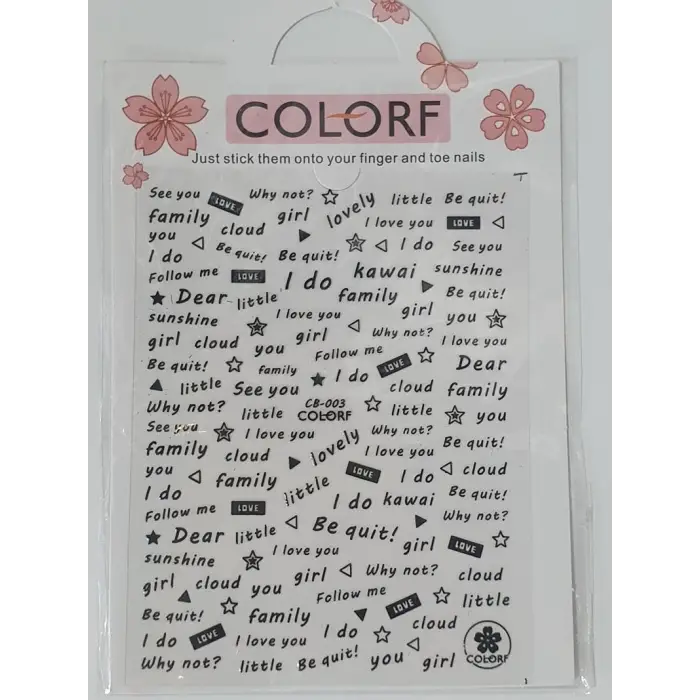 COLORF
Just stick them onto your finger and toe nails
See you LOVE Why not? lovely little Be quit!
family girl I love you LOVE
you cloud Be quit! Be quit! I do See you
I do
Follow me LOVE I do kawai sunshine
Dear little family Be quit!
sunshine I love you girl you
girl cloud you girl Why not? I love you
Be quit! family Follow me LOVE Dear
little See you I do cloud family
Why not? little CB-003 little you
COLORF
See you I love you lovely Why not? Be quit!
family cloud I love you
you family LOVE I do cloud
I do little I do kawai Be quit!
Follow me LOVE Why not?
Dear little Be quit! girl LOVE
sunshine I love you
girl cloud you girl Why not? cloud
Be quit! family Follow me LOVE little
I do LOVE I love you I do cloud
Why not? little Be quit! you girl COLORF